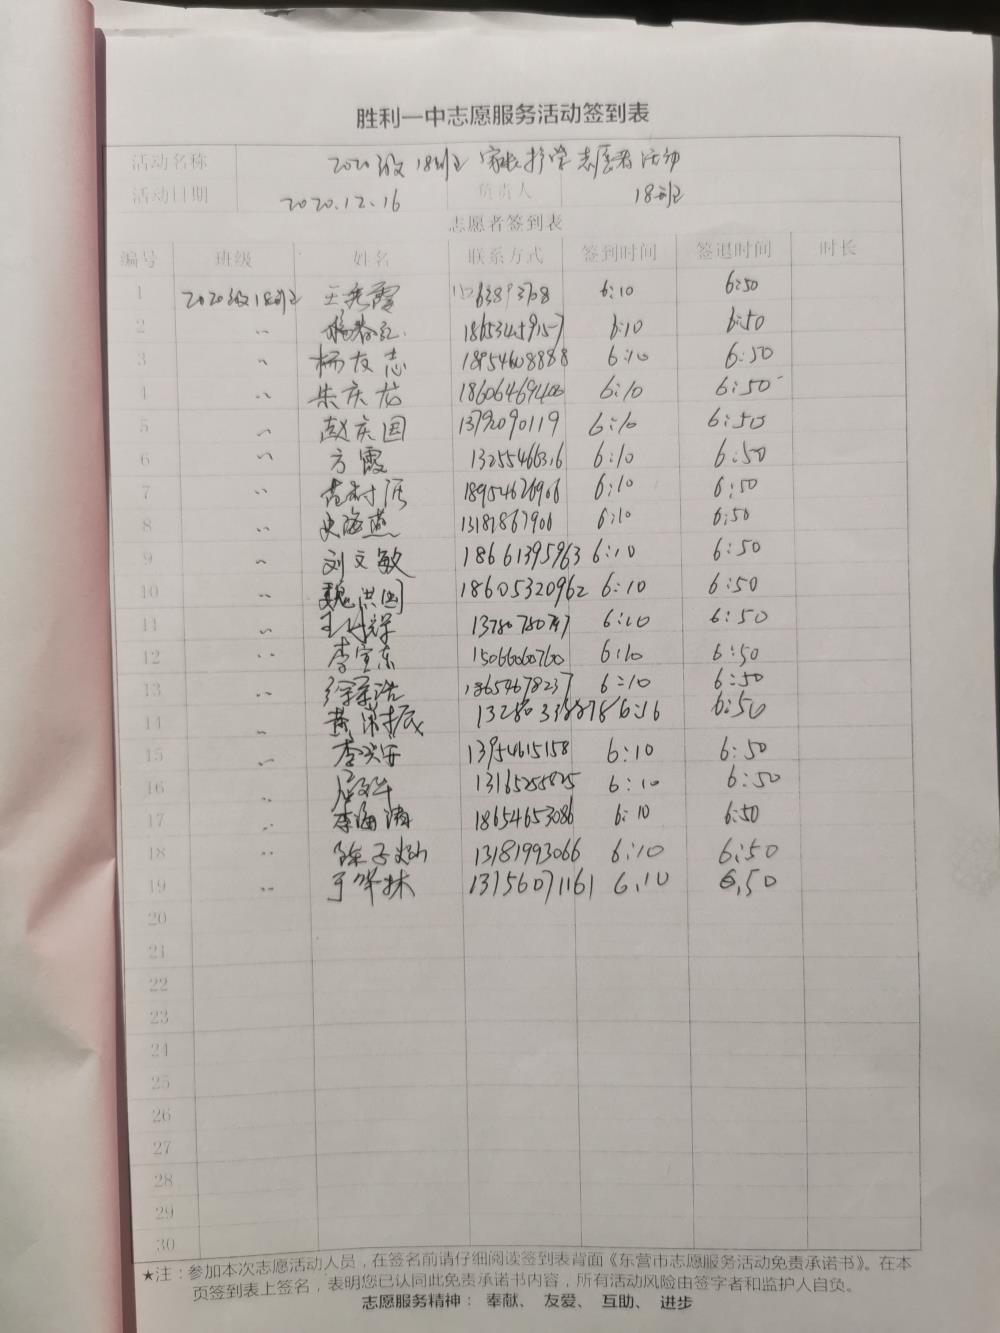 胜利一中志愿服务活动签到表
活动名称 2020级18班 家长护学志愿者活动
活动日期 2020.12.16 负责人 18班
志愿者签到表
编号 班级 姓名 联系方式 签到时间 签退时间 时长
1 2020级18班 王秀霞 6:10 6:50
2 〃 杨春红 18653459157 6:10 6:50
3 〃 杨友志 18954608888 6:10 6:50
4 〃 朱庆龙 18606469400 6:10 6:50
5 〃 赵庆国 13792090119 6:10 6:50
6 〃 方霞 13255466316 6:10 6:50
7 〃 18954626966 6:10 6:50
8 〃 史海燕 13181867906 6:10 6:50
9 〃 刘文敏 18661395963 6:10 6:50
10 〃 魏洪国 18605320962 6:10 6:50
11 〃 13780780747 6:10 6:50
12 〃 李宝东 15066060760 6:10 6:50
13 〃 18654678237 6:10 6:50
14 〃 6:16 6:50
15 〃 李兴安 13954615158 6:10 6:50
16 〃 13165255825 6:10 6:50
17 〃 李海涛 18654653086 6:10 6:50
18 〃 13181993066 6:10 6:50
19 〃 于华林 13756071161 6.10 6.50
20
21
22
23
24
25
26
27
28
29
30
★注：参加本次志愿活动人员，在签名前请仔细阅读签到表背面《东营市志愿服务活动免责承诺书》。在本
页签到表上签名，表明您已认同此免责承诺书内容，所有活动风险由签字者和监护人自负。
志愿服务精神： 奉献、 友爱、 互助、 进步